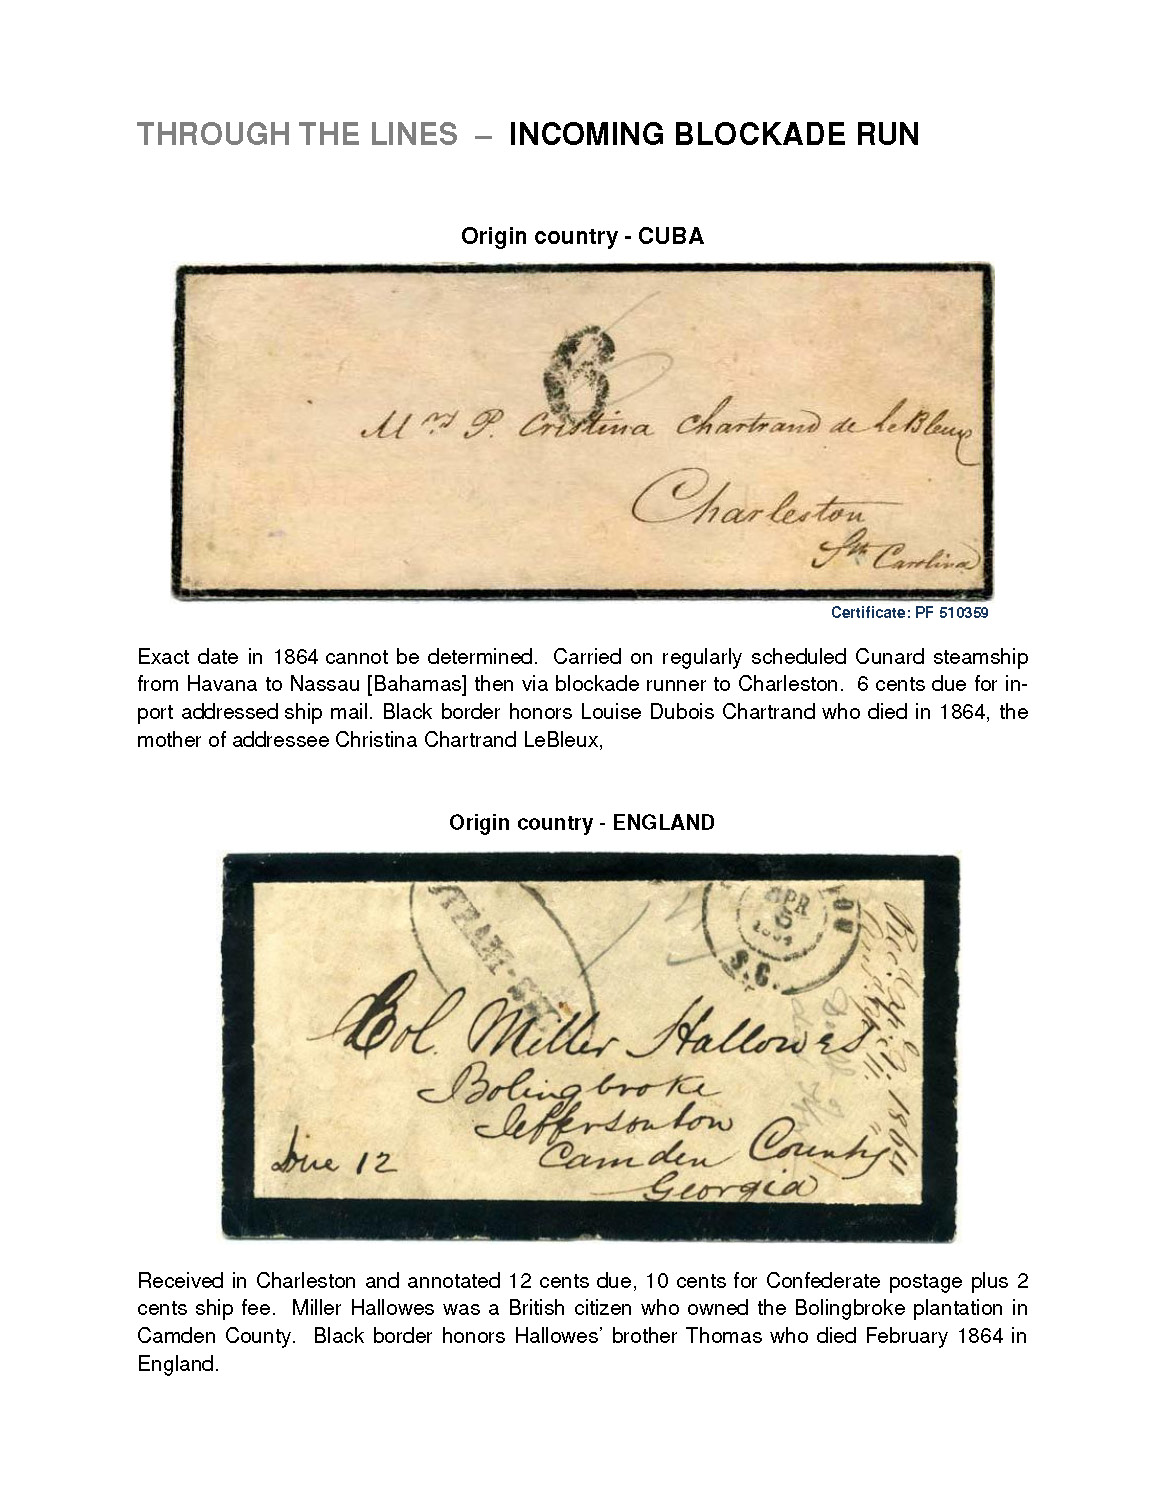 THROUGH THE LINES – INCOMING BLOCKADE RUN
Origin country - CUBA
6
Mrs P. Cristina Chartrand de LeBleux
Charleston
Sth Carolina
Certificate: PF 510359
Exact date in 1864 cannot be determined. Carried on regularly scheduled Cunard steamship
from Havana to Nassau [Bahamas] then via blockade runner to Charleston. 6 cents due for in-
port addressed ship mail. Black border honors Louise Dubois Chartrand who died in 1864, the
mother of addressee Christina Chartrand LeBleux,
Origin country - ENGLAND
STEAM-SH
APR
5
1864
S.C.
Col. Miller Hallowes
Bolingbroke
Jeffersonton
Camden County
Georgia
Due 12
1864
Received in Charleston and annotated 12 cents due, 10 cents for Confederate postage plus 2
cents ship fee. Miller Hallowes was a British citizen who owned the Bolingbroke plantation in
Camden County. Black border honors Hallowes’ brother Thomas who died February 1864 in
England.